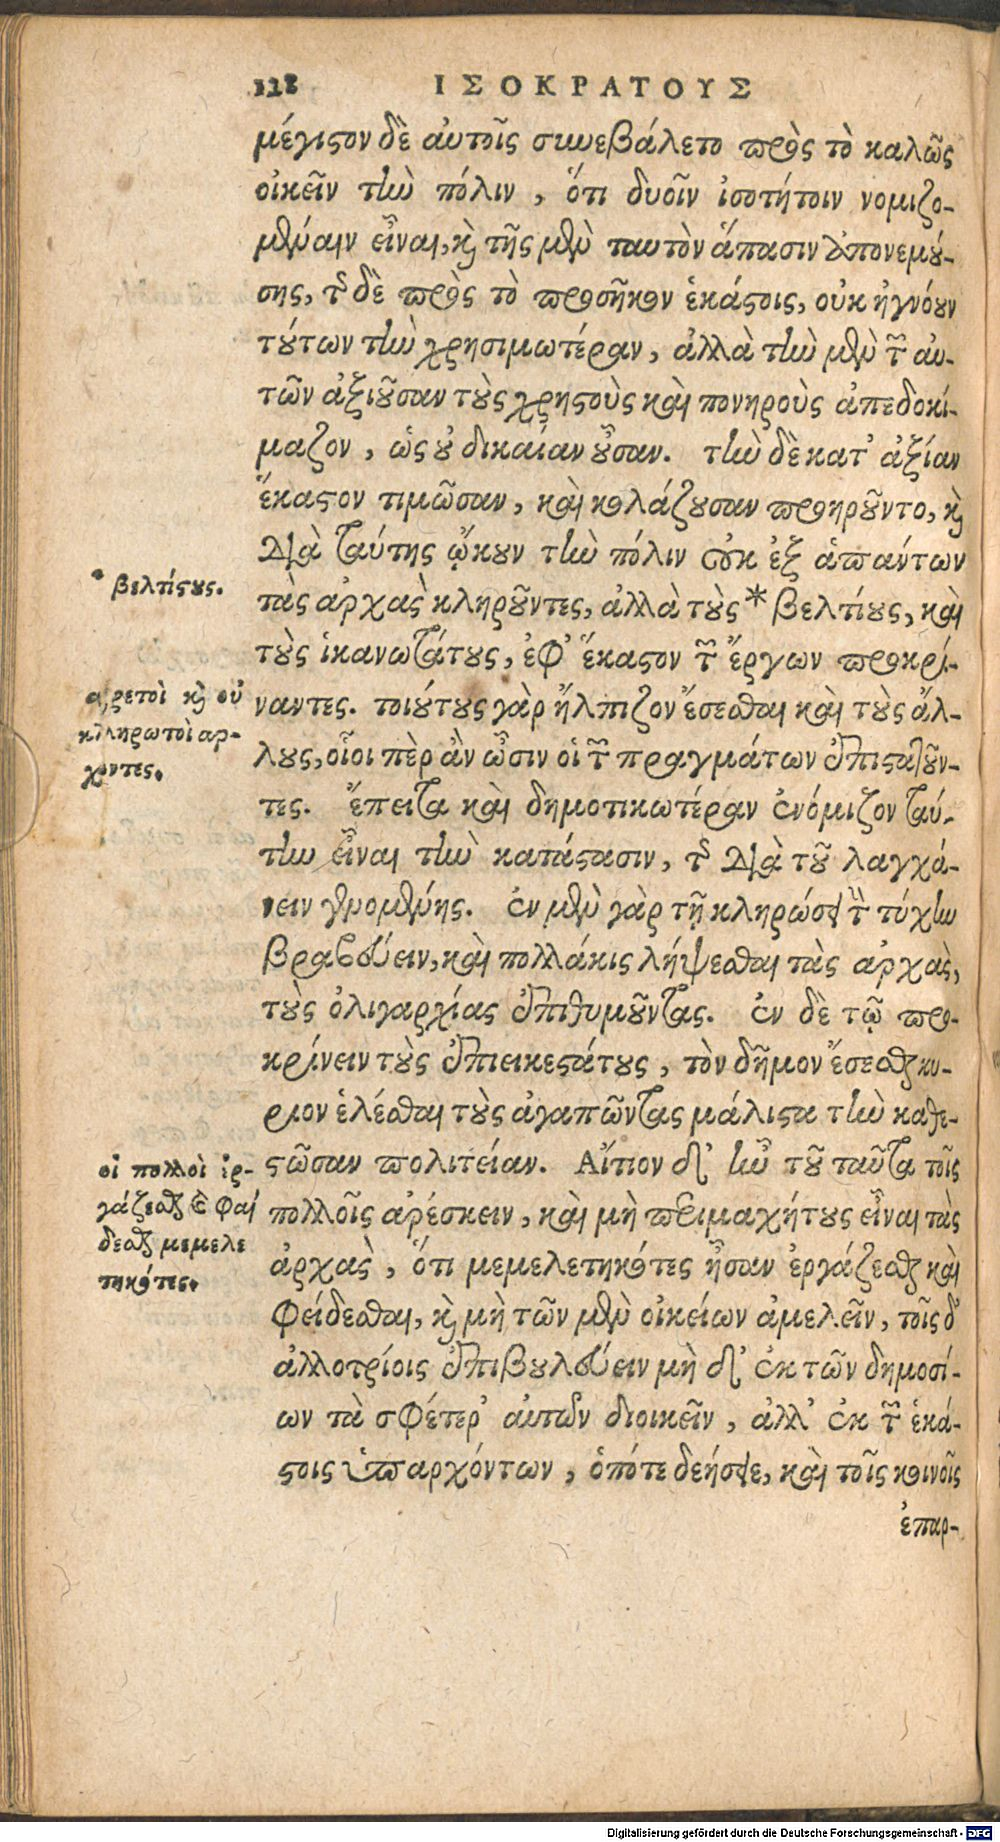 118 ΙΣΟΚΡΑΤΟΥΣ
μέγιστον δὲ αὐτοῖς συνεβάλετο πρὸς τὸ καλῶς
οἰκεῖν τὴν πόλιν, ὅτι δυοῖν ἰσοτήτοιν νομιζο-
μέναιν εἶναι, καὶ τῆς μὲν ταυτὸν ἅπασιν ἀπονεμού-
σης, τῆς δὲ πρὸς τὸ προσῆκον ἑκάστοις, οὐκ ἠγνόουν
τούτων τὴν χρησιμωτέραν, ἀλλὰ τὴν μὲν τῶν αὐ-
τῶν ἀξιοῦσαν τοὺς χρηστοὺς καὶ πονηροὺς ἀπεδοκί-
μαζον, ὡς οὐ δικαίαν οὖσαν. τὴν δὲ κατ' ἀξίαν
ἕκαστον τιμῶσαν, καὶ κολάζουσαν προῃροῦντο, καὶ
διὰ ταύτης ᾤκουν τὴν πόλιν οὐκ ἐξ ἁπάντων
τὰς ἀρχὰς κληροῦντες, ἀλλὰ τοὺς * βελτίους, καὶ
* βελτίστους.
τοὺς ἱκανωτάτους, ἐφ' ἕκαστον τῶν ἔργων προκρί-
ναντες. τοιούτους γὰρ ἤλπιζον ἔσεσθαι καὶ τοὺς ἄλ-
αἱρετοὶ καὶ οὐ
κληρωτοὶ ἄρ-
χοντες.
λους, οἷοι πὲρ ἂν ὦσιν οἱ τῶν πραγμάτων ἐπιστατοῦν-
τες. ἔπειτα καὶ δημοτικωτέραν ἐνόμιζον ταύ-
την εἶναι τὴν κατάστασιν, τῆς διὰ τοῦ λαγχά-
νειν γενομένης. ἐν μὲν γὰρ τῇ κληρώσει τὴν τύχην
βραβεύειν, καὶ πολλάκις λήψεσθαι τὰς ἀρχὰς,
τοὺς ὀλιγαρχίας ἐπιθυμοῦντας. ἐν δὲ τῷ προ-
κρίνειν τοὺς ἐπιεικεστάτους, τὸν δῆμον ἔσεσθαι κύ-
ριον ἑλέσθαι τοὺς ἀγαπῶντας μάλιστα τὴν καθε-
στῶσαν πολιτείαν. Αἴτιον δ' ἦν τοῦ ταῦτα τοῖς
οἱ πολλοὶ ἐρ-
γάζεσθαι καὶ φεί
δεσθαι μεμελε
τηκότες.
πολλοῖς ἀρέσκειν, καὶ μὴ περιμαχήτους εἶναι τὰς
ἀρχὰς, ὅτι μεμελετηκότες ἦσαν ἐργάζεσθαι καὶ
φείδεσθαι, καὶ μὴ τῶν μὲν οἰκείων ἀμελεῖν, τοῖς δ'
ἀλλοτρίοις ἐπιβουλεύειν μὴ δ' ἐκ τῶν δημοσί-
ων τὰ σφέτερ' αὐτῶν διοικεῖν, ἀλλ' ἐκ τῶν ἑκά-
στοις ὑπαρχόντων, ὁπότε δεήσειε, καὶ τοῖς κοινοῖς
ἐπαρ-
Digitalisierung gefördert durch die Deutsche Forschungsgemeinschaft - DFG